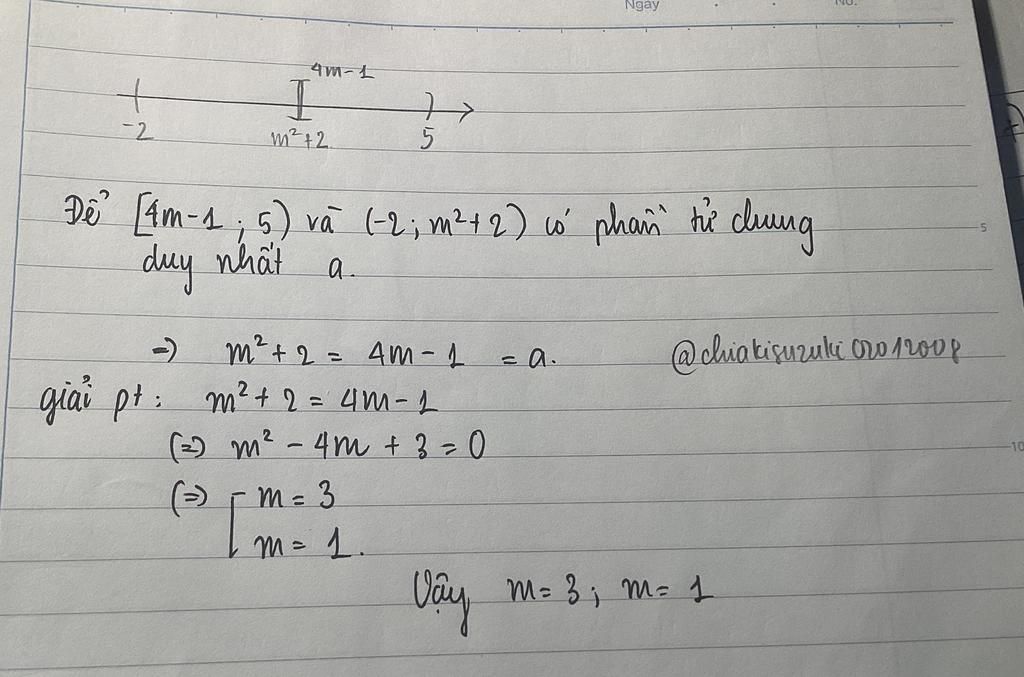 Ngày
No.
4m-1
-2 m²+2 5
Để [4m-1 ; 5) và (-2; m²+2) có phần tử chung
duy nhất a.
5
=> m²+2 = 4m-1 = a.
@chiakisuzuki02012008
giải pt: m²+2 = 4m-1
(=) m² - 4m + 3 = 0
10
(=) [ m = 3
m = 1.
Vậy m = 3 ; m = 1